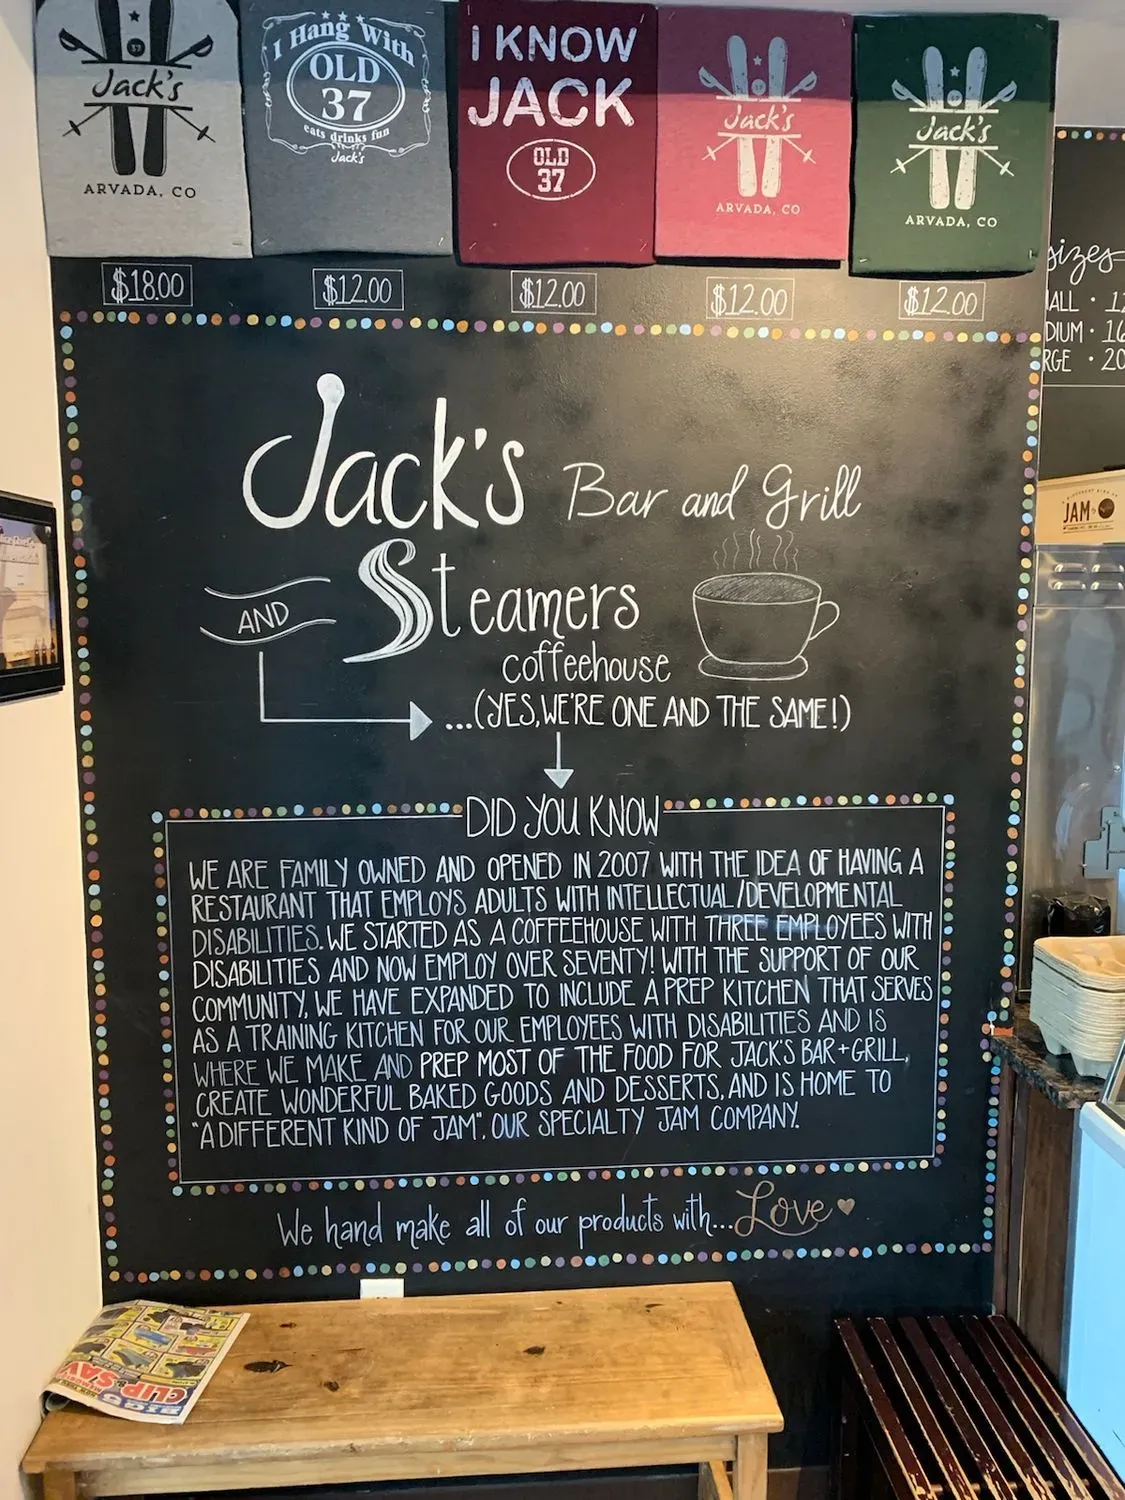 Jack's
37
ARVADA, CO
I Hang With
OLD
37
eats drinks fun
Jack's
I KNOW
JACK
OLD
37
Jack's
37
ARVADA, CO
Jack's
ARVADA, CO
$18.00
$12.00
$12.00
$12.00
$12.00
sizes
ALL · 12
DIUM · 16
RGE · 20
Jack's Bar and Grill
AND Steamers
coffeehouse
...(YES, WE'RE ONE AND THE SAME!)
DID YOU KNOW
WE ARE FAMILY OWNED AND OPENED IN 2007 WITH THE IDEA OF HAVING A
RESTAURANT THAT EMPLOYS ADULTS WITH INTELLECTUAL/DEVELOPMENTAL
DISABILITIES. WE STARTED AS A COFFEEHOUSE WITH THREE EMPLOYEES WITH
DISABILITIES AND NOW EMPLOY OVER SEVENTY! WITH THE SUPPORT OF OUR
COMMUNITY, WE HAVE EXPANDED TO INCLUDE A PREP KITCHEN THAT SERVES
AS A TRAINING KITCHEN FOR OUR EMPLOYEES WITH DISABILITIES AND IS
WHERE WE MAKE AND PREP MOST OF THE FOOD FOR JACK'S BAR+GRILL,
CREATE WONDERFUL BAKED GOODS AND DESSERTS, AND IS HOME TO
"A DIFFERENT KIND OF JAM". OUR SPECIALTY JAM COMPANY.
We hand make all of our products with... Love
JAM
CLIP & SAV